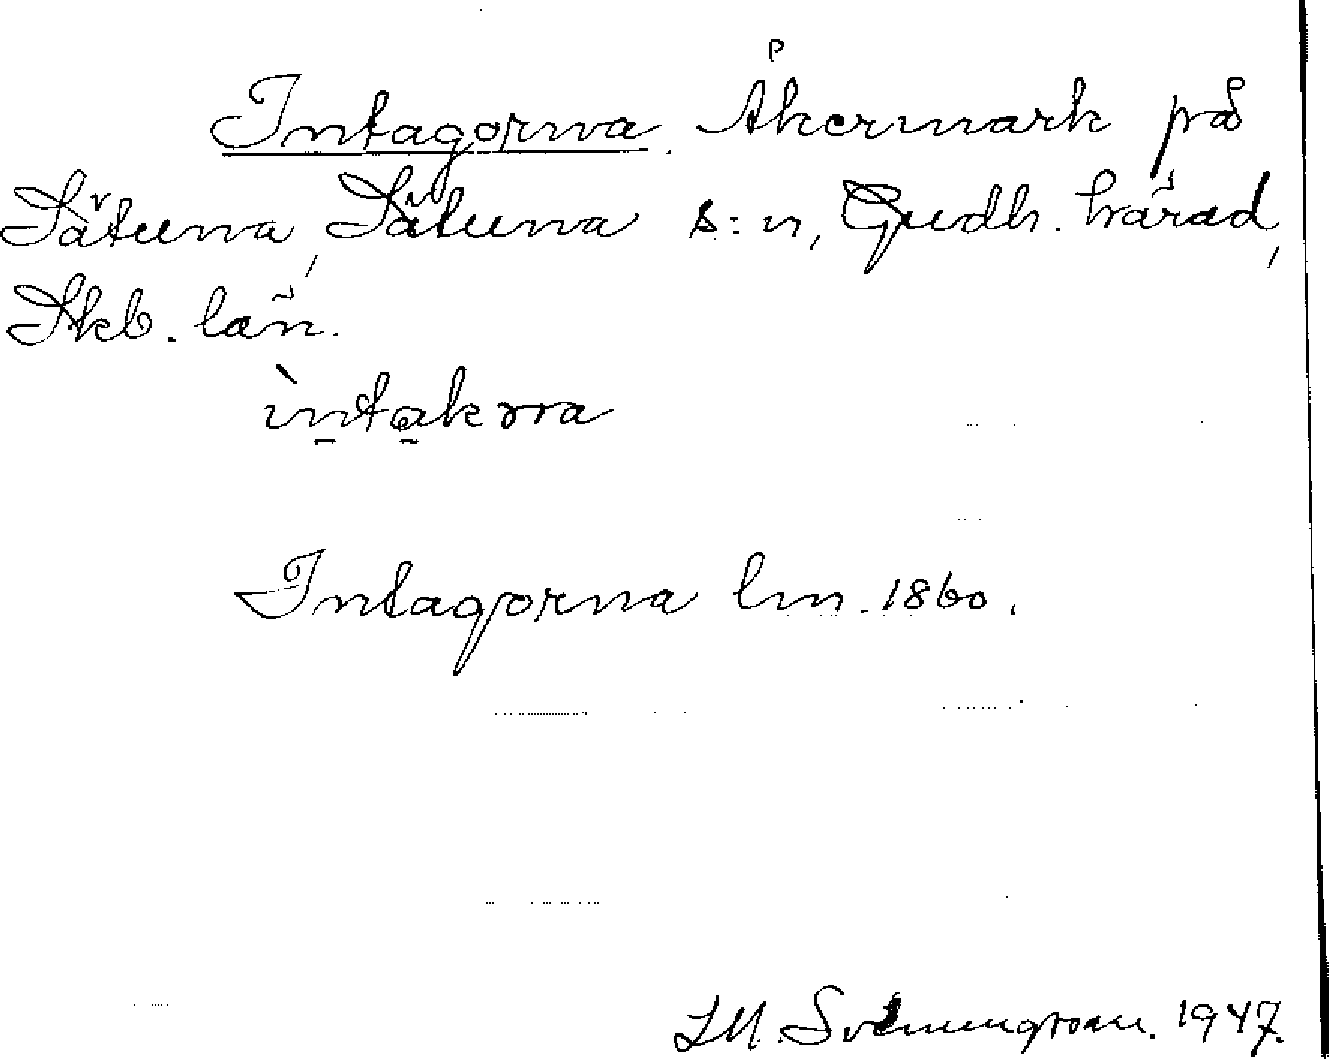 Intagorna. Åkermark på
Sätuna, Sätuna s:n, Gudh. härad,
Skb. län.
ìntakrra
Intagorna lm. 1860.
J M Svenungsson. 1947.